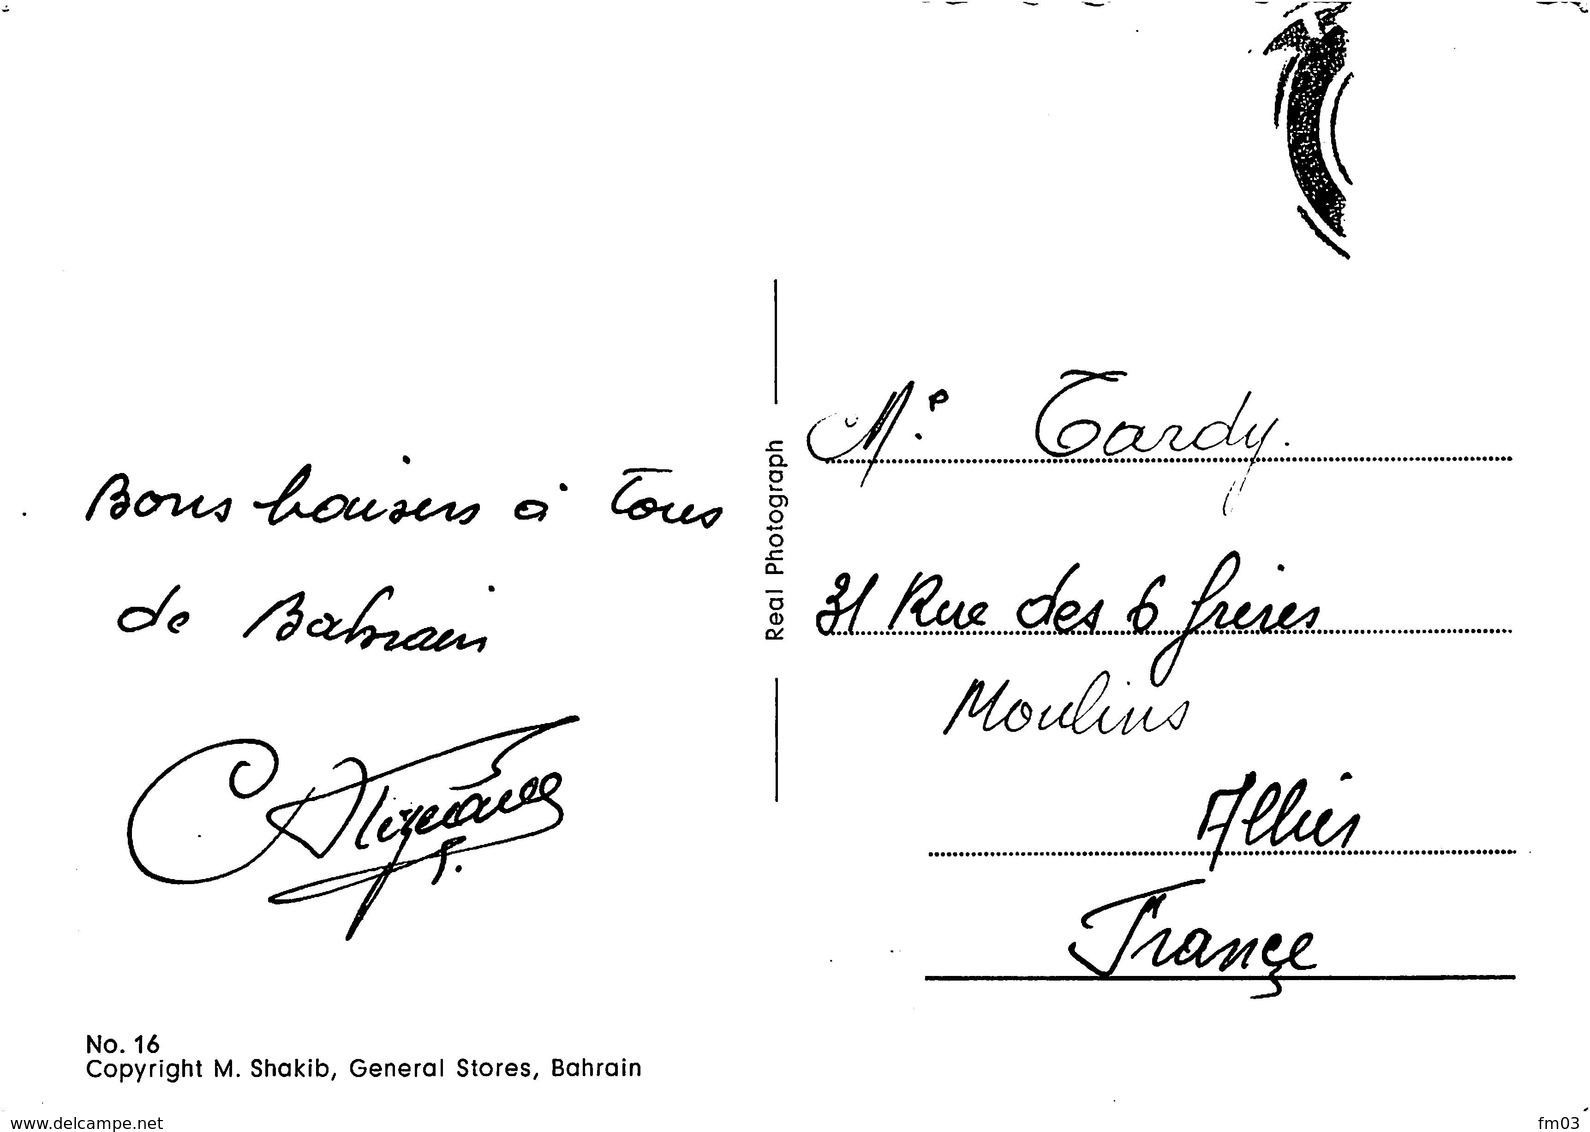 Bons baisers à Tous
de Bahrain
No. 16
Copyright M. Shakib, General Stores, Bahrain
Real Photograph
M.e Tardy.
31 Rue des 6 frères
Moulins
Allier
France
www.delcampe.net
fm03